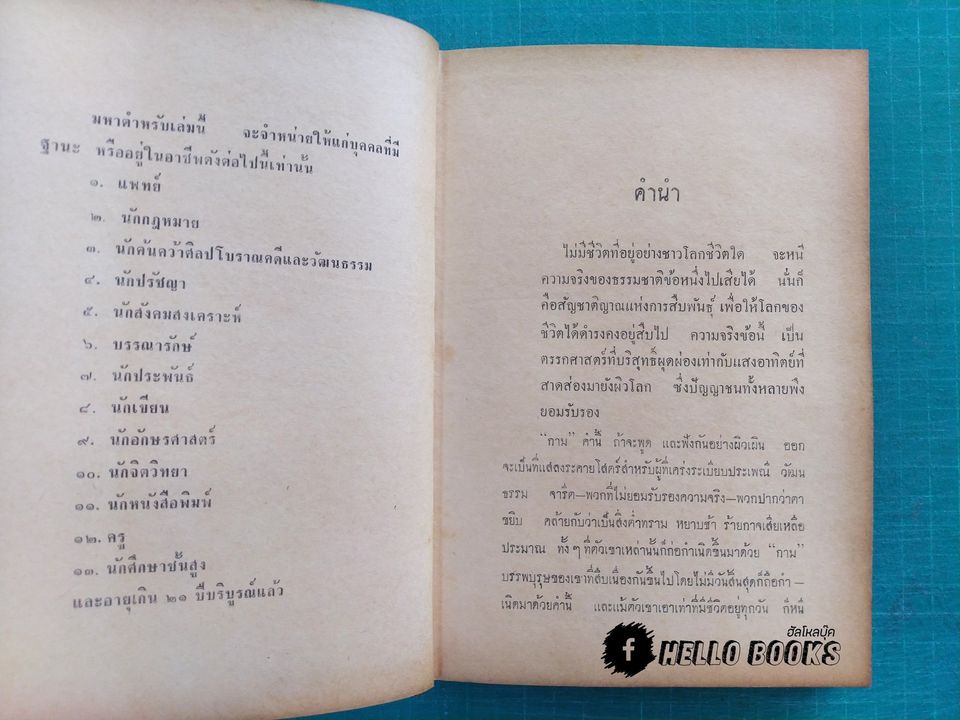 มหาตำหรับเล่มนี้ จะจำหน่ายให้แก่บุคคลที่มี
ฐานะ หรืออยู่ในอาชีพดังต่อไปนี้เท่านั้น
๑. แพทย์
๒. นักกฎหมาย
๓. นักค้นคว้าศิลปโบราณคดีและวัฒนธรรม
๔. นักปรัชญา
๕. นักสังคมสงเคราะห์
๖. บรรณารักษ์
๗. นักประพันธ์
๘. นักเขียน
๙. นักอักษรศาสตร์
๑๐. นักจิตวิทยา
๑๑. นักหนังสือพิมพ์
๑๒. ครู
๑๓. นักศึกษาชั้นสูง
และอายุเกิน ๒๑ ปีบริบูรณ์แล้ว
คำนำ
ไม่มีชีวิตที่อยู่อย่างชาวโลกชีวิตใด จะหนี
ความจริงของธรรมชาติข้อหนึ่งไปเสียได้ นั่นก็
คือสัญชาติญาณแห่งการสืบพันธุ์ เพื่อให้โลกของ
ชีวิตได้ดำรงคงอยู่สืบไป ความจริงข้อนี้ เป็น
ตรรกศาสตร์ที่บริสุทธิ์ผุดผ่องเท่ากับแสงอาทิตย์ที่
สาดส่องมายังผิวโลก ซึ่งปัญญาชนทั้งหลายพึง
ยอมรับรอง
"กาม" คำนี้ ถ้าจะพูด และฟังกันอย่างผิวเผิน ออก
จะเป็นที่แสลงระคายโสตร์สำหรับผู้ที่เคร่งระเบียบประเพณี วัฒน
ธรรม จารีต—พวกที่ไม่ยอมรับรองความจริง—พวกปากว่าตา
ขยิบ คล้ายกับว่าเป็นสิ่งต่ำทราม หยาบช้า ร้ายกาจเสียเหลือ
ประมาณ ทั้ง ๆ ที่ตัวเขาเหล่านั้นก็ก่อกำเนิดขึ้นมาด้วย "กาม"
บรรพบุรุษของเขาที่สืบเนื่องกันขึ้นไปโดยไม่มีวันสิ้นสุดก็ถือกำ—
เนิดมาด้วยคำนี้ และแม้ตัวเขาเอาเท่าที่มีชีวิตอยู่ทุกวัน ก็หนี
ฮัลโหลบุ๊ค
f HELLO BOOKS